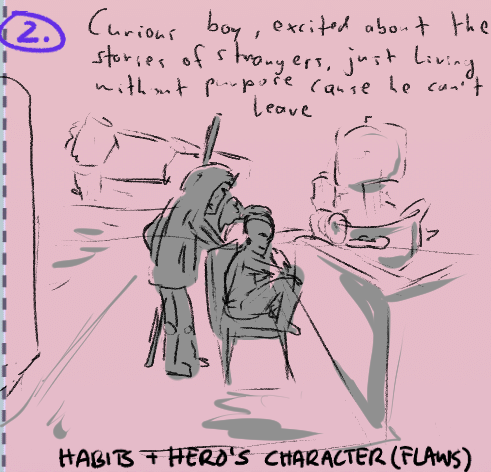 2.
Curious boy, excited about the
stories of strangers, just living
without purpose cause he can't
leave
HABITS + HERO'S CHARACTER (FLAWS)